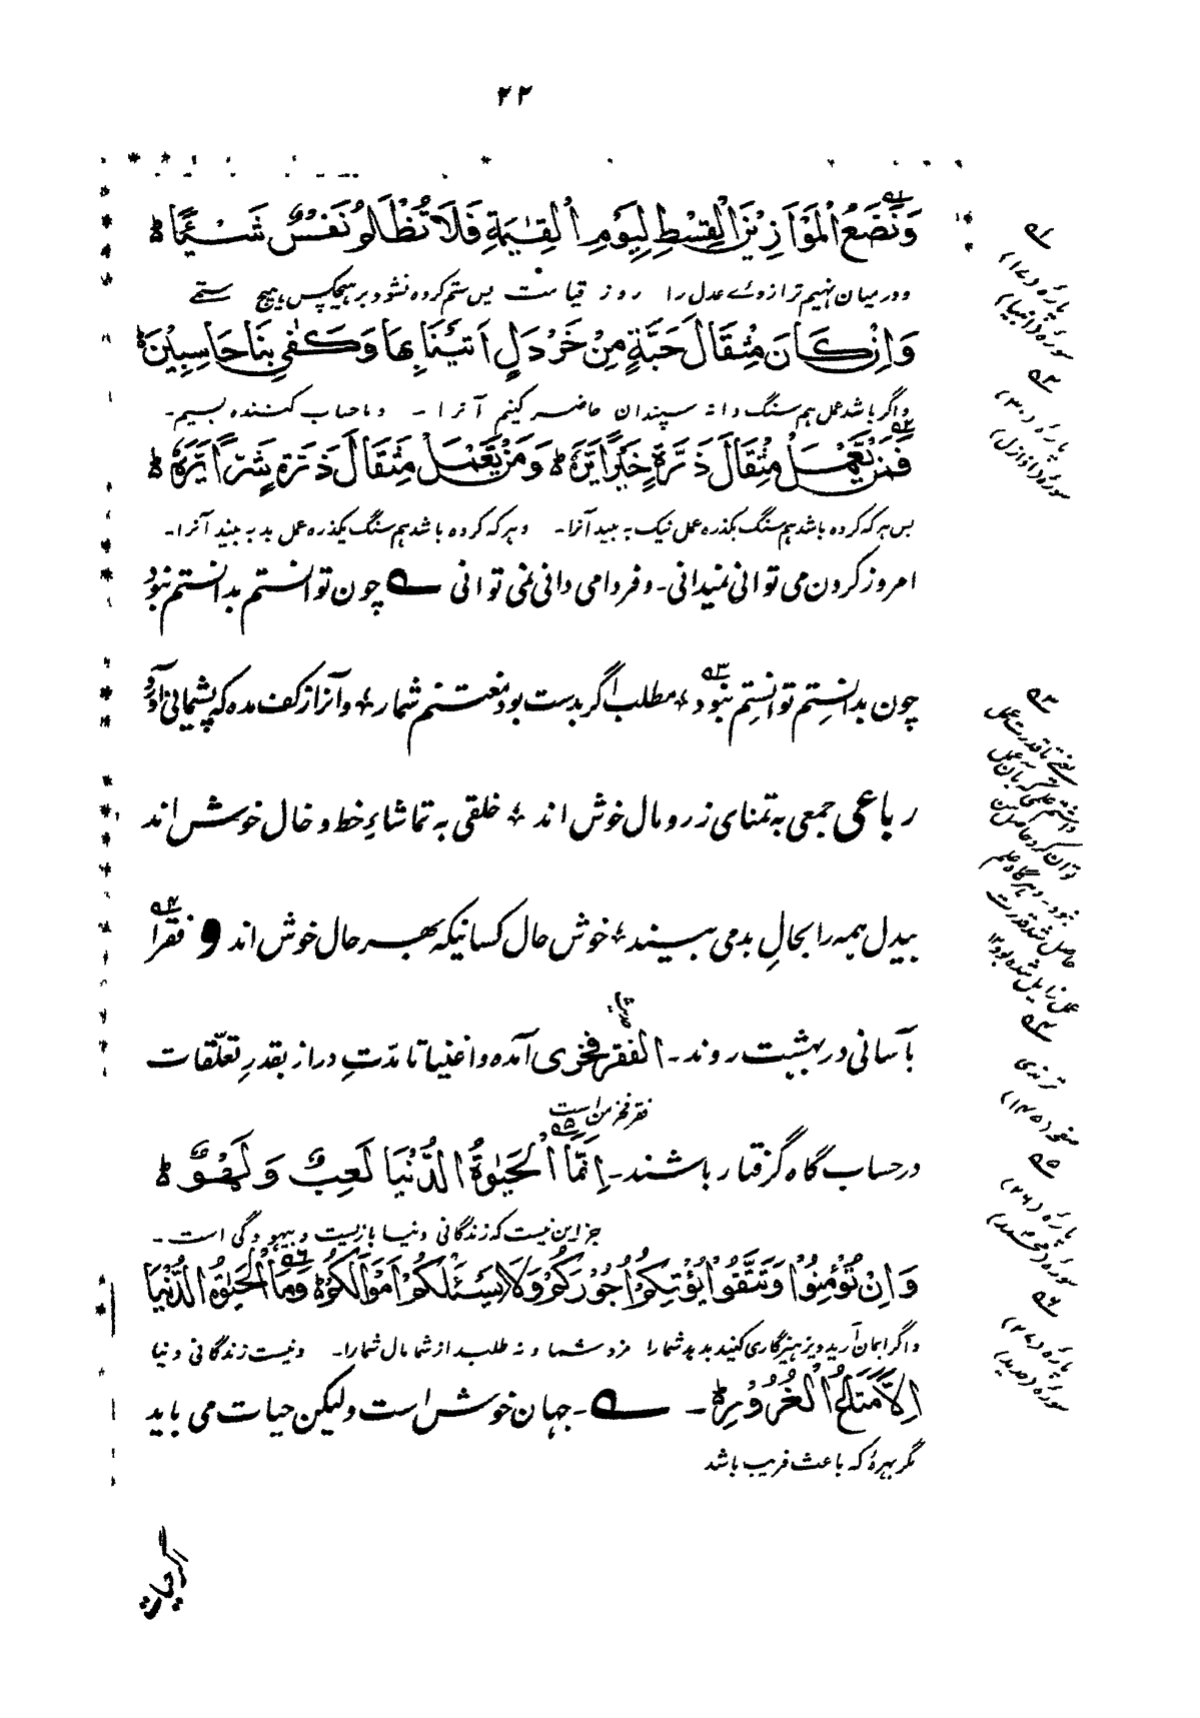 ۲۲
وَنَضَعُ الْمَوَازِیْنَ الْقِسْطَ لِیَوْمِ الْقِیٰمَةِ فَلَا تُظْلَمُ نَفْسٌ شَیْـًٔا ط
و درمیان نهیم ترازوئے عدل را روز قیامت پس ستم کرده نشود بر هیچکس بهیچ ستمے
وَاِنْ کَانَ مِثْقَالَ حَبَّةٍ مِنْ خَرْدَلٍ اَتَیْنَا بِهَا وَکَفٰی بِنَا حَاسِبِیْنَ ط
و اگر باشد عمل هم سنگ دانه سپندان حاضر کنیم آنرا - و ما حساب کننده بسیم -
فَمَنْ یَّعْمَلْ مِثْقَالَ ذَرَّةٍ خَیْرًا یَّرَهٗ ط وَمَنْ یَّعْمَلْ مِثْقَالَ ذَرَّةٍ شَرًّا یَّرَهٗ ط
پس هر که کرده باشد هم سنگ یکذره عمل نیک به بیند آنرا - و هر که کرده باشد هم سنگ یکذره عمل بد به بیند آنرا -
امروز کردن می توانی نمیدانی - و فردا می دانی نمی توانی ؎ چون توانستم بدانستم نبود
چون بدانستم توانستم نبود ؛ مطلب اگر بدست بود مغتنم شمار ؛ و آنرا از کف مده که پشیمانی آورد
رباعی جمعی به تمنای زر و مال خوش اند ؛ خلقی به تماشاءِ خط و خال خوش اند
بیدل همه را بحالِ بد می بینند ؛ خوش حال کسانیکه بهر حال خوش اند و فقرا
بآسانی در بهشت روند - الفقر فخری آمده و اغنیا تا مدّتِ دراز بقدرِ تعلّقات
حدیث
فقر فخر من است
در حساب گاه گرفتار باشند - اِنَّمَا الْحَیٰوةُ الدُّنْیَا لَعِبٌ وَّلَهْوٌ ط
جز این نیست که زندگانی دنیا بازیست و بیهودگی است -
وَاِنْ تُؤْمِنُوْا وَتَتَّقُوْا یُؤْتِکُمْ اُجُوْرَکُمْ وَلَا یَسْـَٔلْکُمْ اَمْوَالَکُمْ ط وَمَا الْحَیٰوةُ الدُّنْیَا
و اگر ایمان آرید و پرهیزگاری کنید بدهد شما را مزد شما و نه طلبد از شما مال شما را - و نیست زندگانی دنیا
اِلَّا مَتَاعُ الْغُرُوْرِ ط - ؎ - جهان خوش است و لیکن حیات می باید
مگر بهرهٔ که باعث فریب باشد
اگر حیات
۵۱
پارهٔ (۱۷)
سورهٔ (انبیا)
۵۲
پارهٔ (۳۰)
سورهٔ (اذا زلزل)
۵۳
یعنے تا قدرت عمل
داشتم علمی که بآن عمل
توان کرد حاصل
نبود - و هرگاه علم
حاصل شد قدرت
عمل زایل شده بود ۱۲
۵۴
ترمذی
صفحه (۱۴۵)
۵۵
پارهٔ (۲۶)
سورهٔ (محمد)
۵۶
پارهٔ (۲۷)
سورهٔ (حدید)